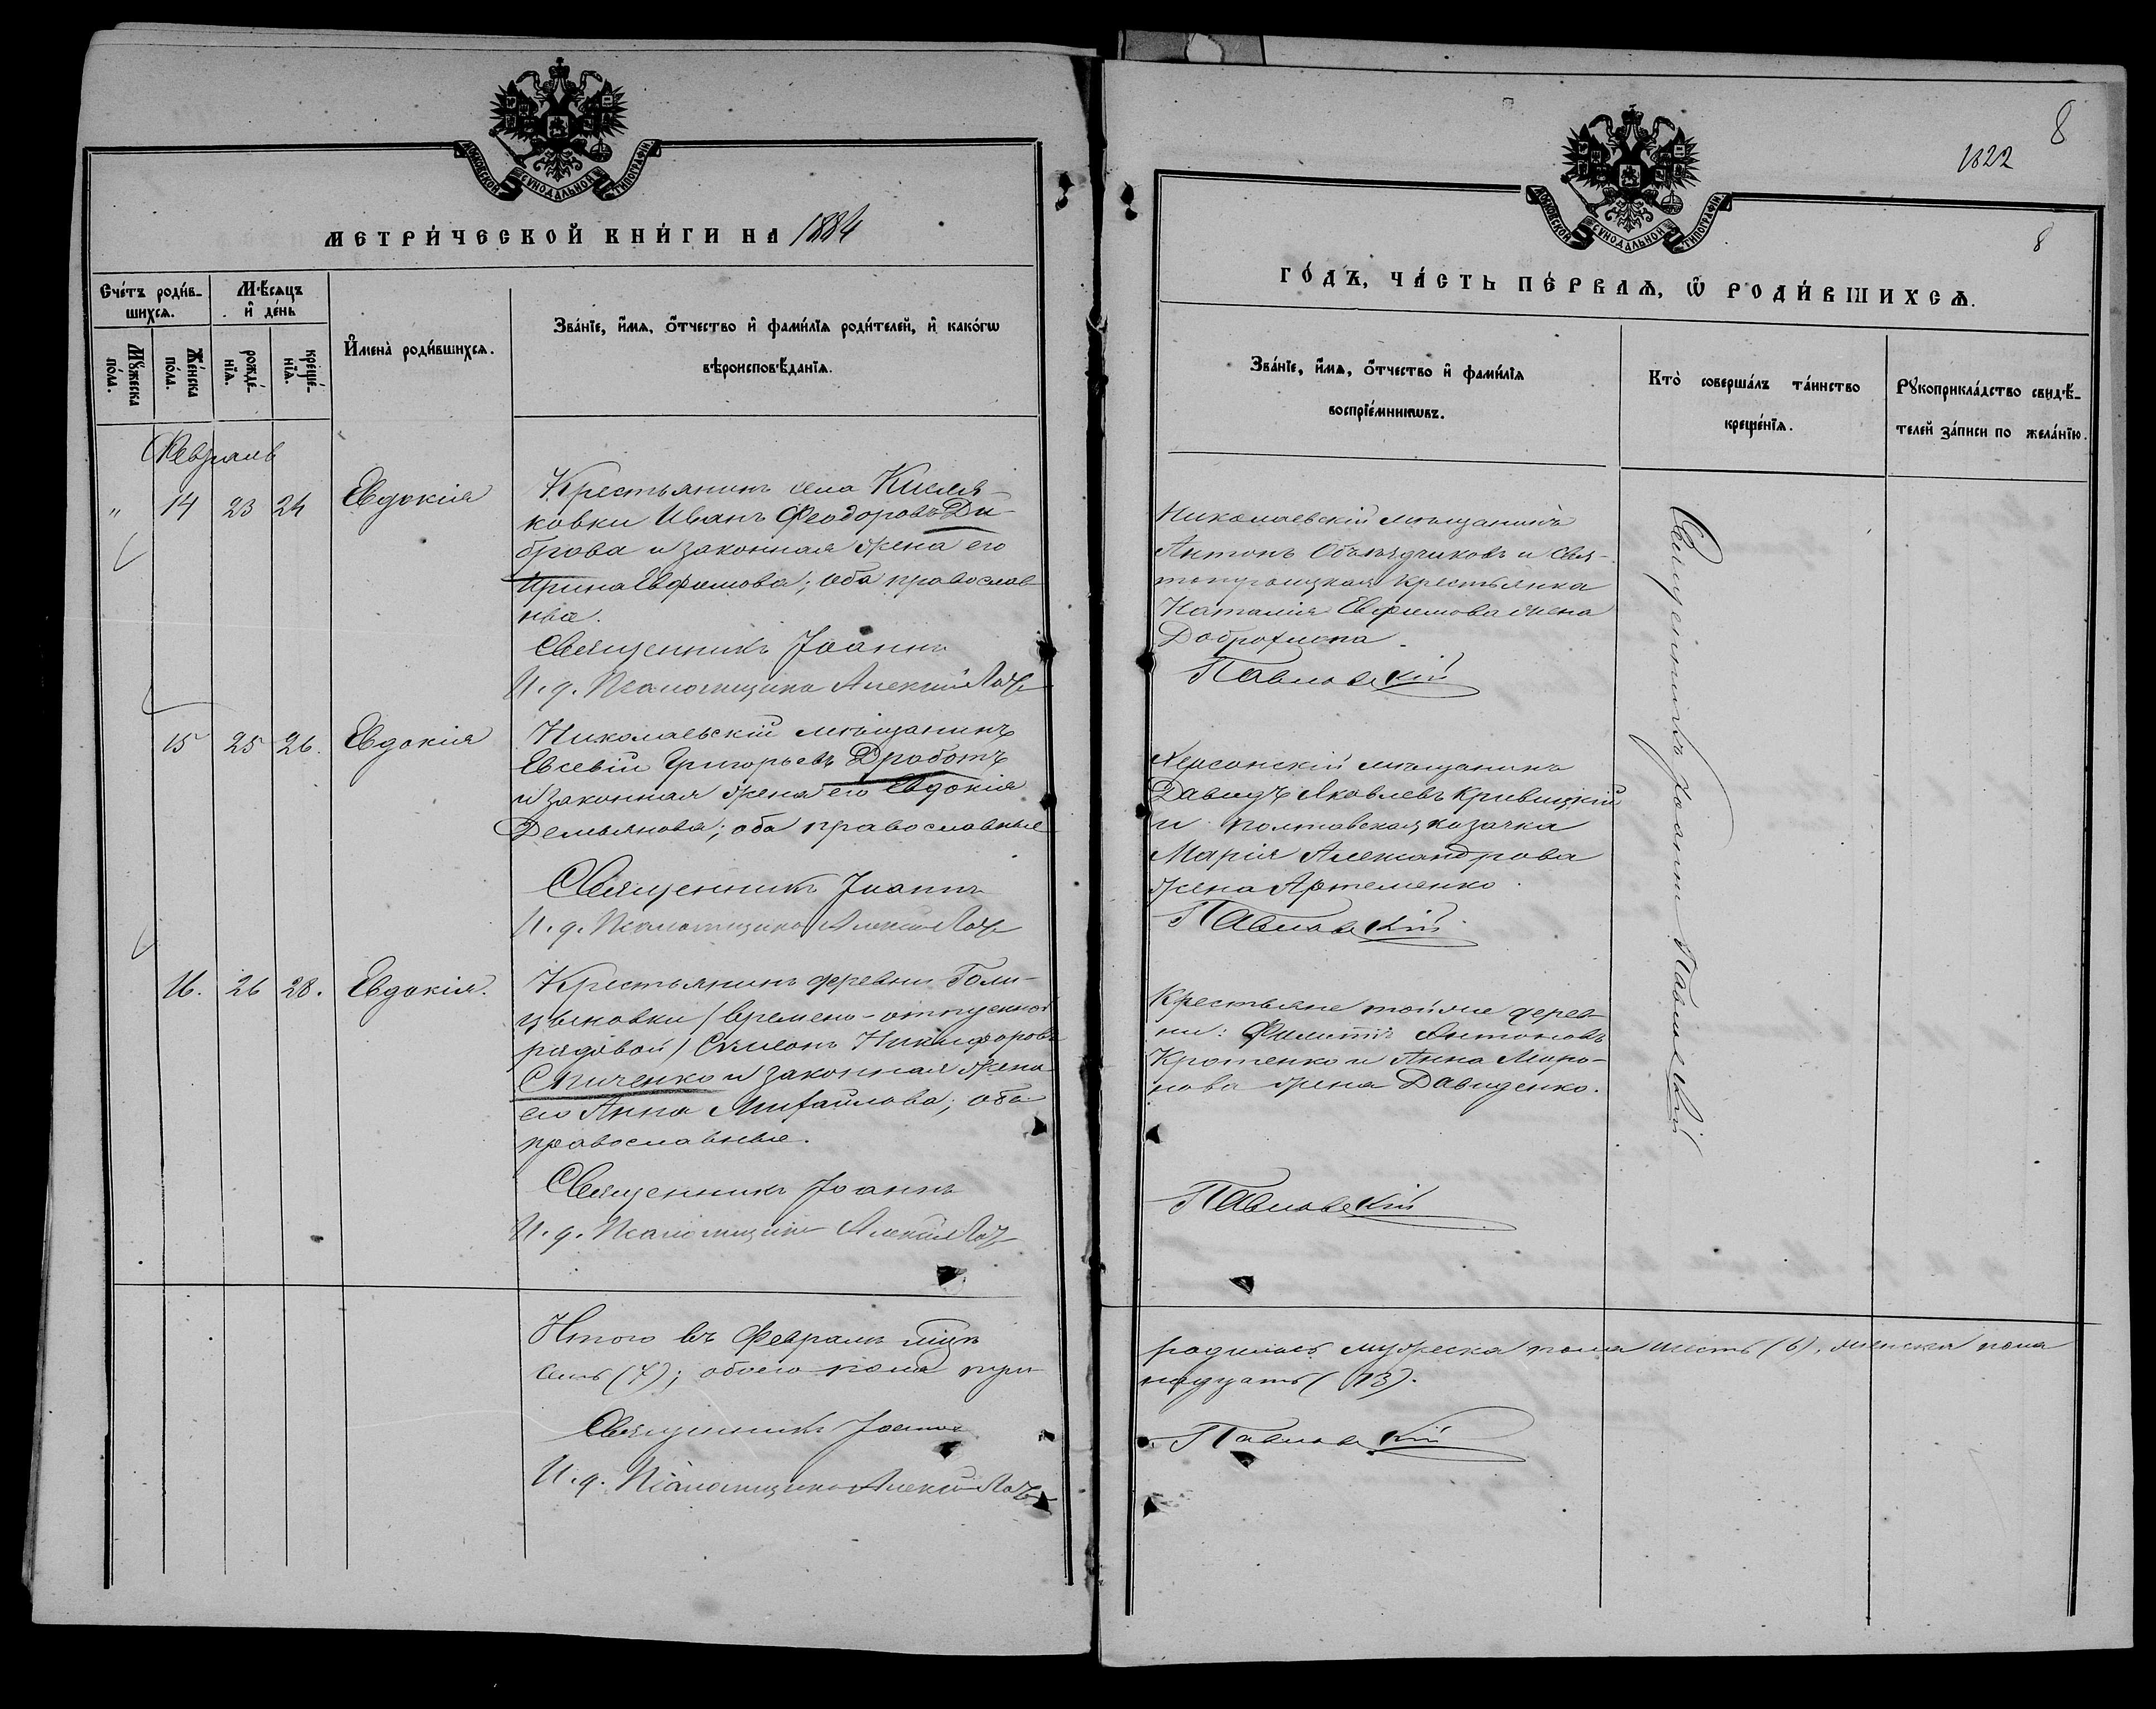 МОСКОВСКОЙ СѴНОДАЛЬНОЙ ТИПОГРАФІИ
МЕТРИ́ЧЕСКОЙ КНИ́ГИ НА 1884
Сче́тъ роди́в-
шихсѧ.
Мѣ́сѧцъ
и҆ де́нь
И҆мена̀ роди́вшихсѧ.
Зва́нїе, и҆́мѧ, ѻ҆́тчество и҆ фами́лїѧ роди́телей, и҆ како́гѡ
вѣроисповѣ́данїѧ.
Мꙋ́жеска
по́ла.
Же́нска
по́ла.
рожде́-
нїѧ.
креще́-
нїѧ.
Февраль
" 14 23 24 Евдокія
Крестьянинъ села Кисля-
ковки Иванъ Феодоровъ Ди-
брова и законная жена его
Ирина Евфимова; оба православ-
ные.
Священникъ Іоаннъ
И. д. Псаломщика Алексій
15 25 26. Евдокія
Николаевскій мѣщанинъ
Евсевій Григорьевъ Дроботъ
и законная жена его Евдокія
Демьянова; оба православные
Священникъ Іоаннъ
И. д. Псаломщика Алексій
16. 26 28. Евдокія.
Крестьянинъ деревни Голи-
цыновки (временно-отпускной
рядовой) Симеонъ Никифоровъ
Спиченко и законная жена
его Анна Михайлова; оба
православные.
Священникъ Іоаннъ
И. д. Псаломщика Алексій
Итого въ Февралѣ мцѣ
семь (7); обоего пола три-
Священникъ Іоаннъ
И. д. Псаломщика Алексій
8
1822
МОСКОВСКОЙ СѴНОДАЛЬНОЙ ТИПОГРАФІИ
8
ГО́ДЪ, ЧА́СТЬ ПЕ́РВАѦ, Ѡ҆ РОДИ́ВШИХСѦ.
Зва́нїе, и҆́мѧ, ѻ҆́тчество и҆ фами́лїѧ
воспрїе́мникѡвъ.
Кто̀ соверша́лъ та́инство
креще́нїѧ.
Рꙋкоприкла́дство свидѣ́-
телей за́писи по жела́нїю.
Николаевскій мѣщанинъ
Антонъ Объѣздчиковъ и Свя-
тотроицкая крестьянка
Наталія Евфимова жена
Павловскій
Херсонскій мѣщанинъ
Давидъ Яковлевъ Кривицкій
и полтавская козачка
Марія Александрова
жена Артеменко.
Павловскій
Крестьяне той же дерев-
ни: Филиппъ Антоновъ
Кротенко и Анна Миро-
нова жена Давиденко.
Павловскій
Священникъ Іоаннъ Павловскій
родилось мужеска пола шесть (6), женска пола
надцать (13).
Павловскій